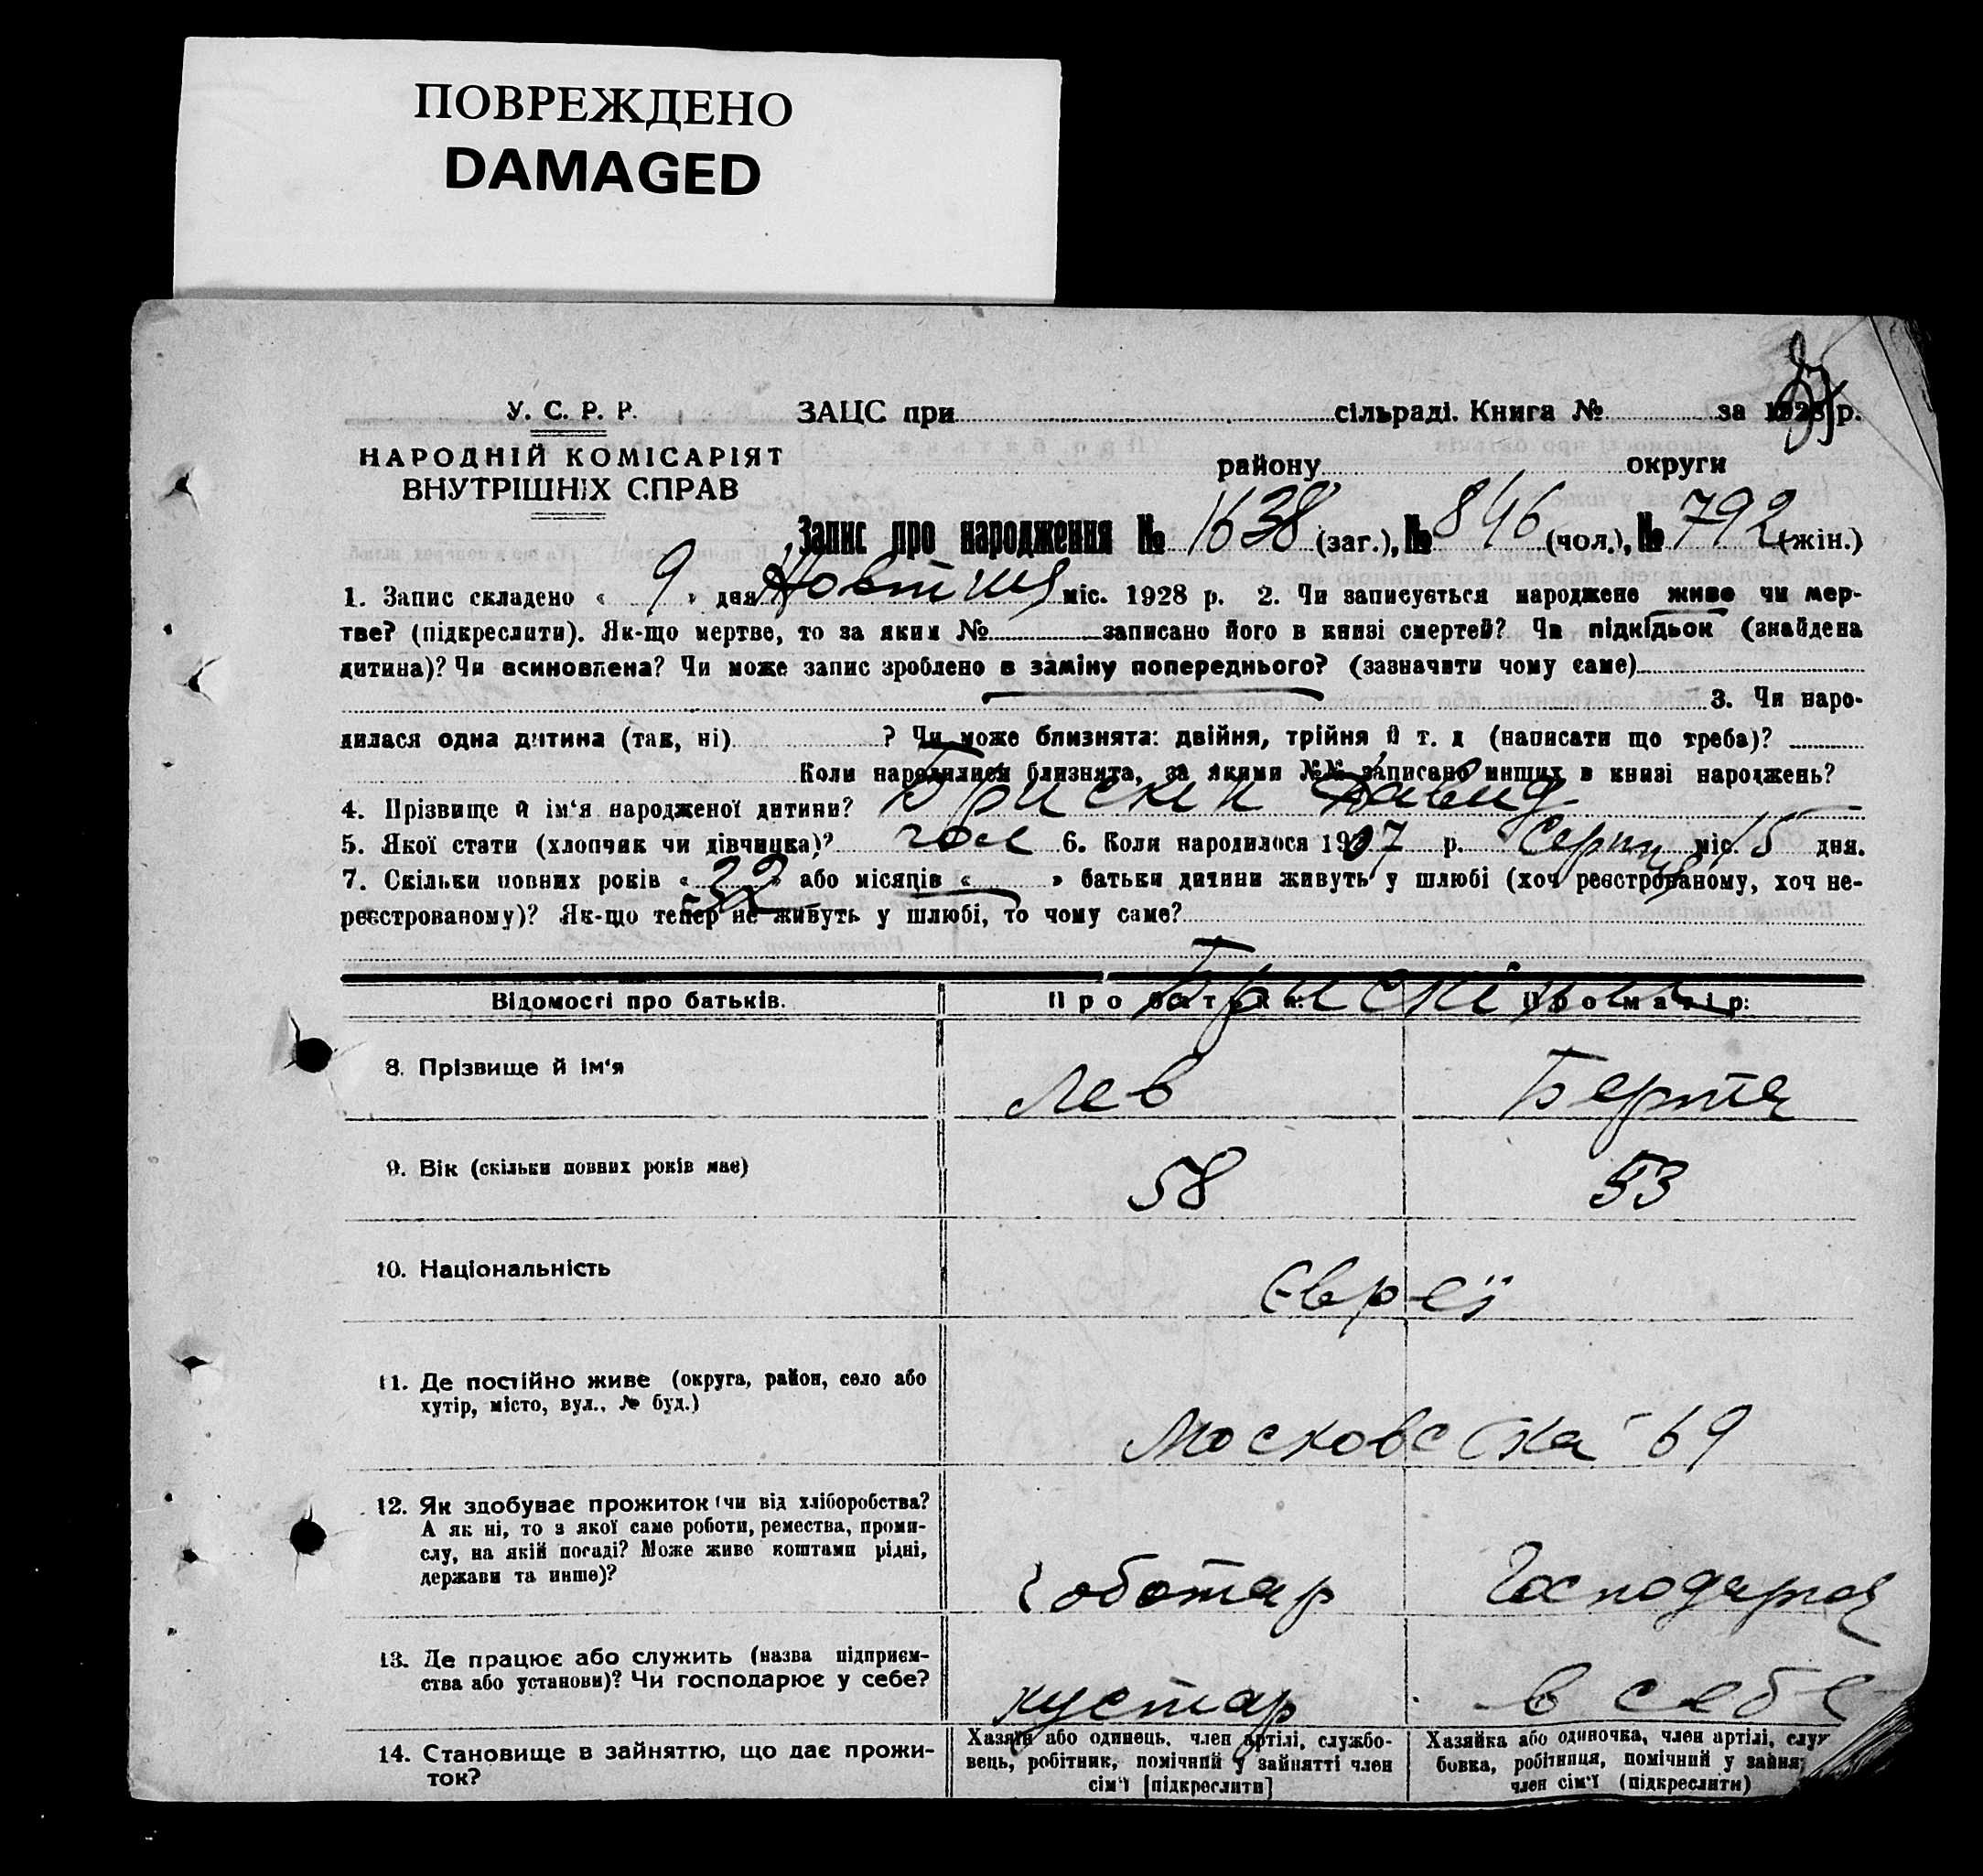 ПОВРЕЖДЕНО
DAMAGED
У. С. Р. Р. ЗАЦС при сільраді. Книга № за 1928 р.
НАРОДНІЙ КОМІСАРІЯТ району округи
ВНУТРІШНІХ СПРАВ
Запис про народження № 1638 (заг.), № 846 (чол.), № 792 (жін.)
1. Запис складено « 9 » дня Жовтня міс. 1928 р. 2. Чи записується народжене живе чи мер-
тве? (підкреслити). Як-що мертве, то за яким № записано його в книзі смертей? Чи підкідьок (знайдена
дитина)? Чи всиновлена? Чи може запис зроблено в заміну попереднього? (зазначити чому саме)
3. Чи наро-
дилася одна дитина (так, ні) ? Чи може близнята: двійня, трійня й т. д (написати що треба)?
Коли народилися близнята, за якими №№ записано инших в книзі народжень?
4. Прізвище й ім‘я народженої дитини? Брискін Давид
5. Якої стати (хлопчик чи дівчинка)? чол 6. Коли народилося 1907 р. Серпня міс. 15 дня.
7. Скільки повних років « 32 » або місяців « » батьки дитини живуть у шлюбі (хоч реєстрованому, хоч не-
реєстрованому)? Як-що тепер не живуть у шлюбі, то чому саме?
Брискіни
Відомості про батьків. Про батька: Про матір:
8. Прізвище й ім‘я Лев Берта
9. Вік (скільки повних років має) 58 53
10. Національність Євреї
11. Де постійно живе (округа, район, село або
хутір, місто, вул., № буд.)
Московська 69
12. Як здобуває прожиток (чи від хліборобства?
А як ні, то з якої саме роботи, ремества, проми-
слу, на якій посаді? Може живе коштами рідні,
держави та инше)?
Чоботар Господарка
13. Де працює або служить (назва підприєм-
ства або установи)? Чи господарює у себе?
кустар в себе
14. Становище в зайняттю, що дає прожи-
ток?
Хазяїн або одинець, член артілі, службо-
вець, робітник, помічний у зайнятті член
сім‘ї [підкреслити]
Хазяйка або одиночка, член артілі, служ
бовка, робітниця, помічний у зайня
член сім‘ї (підкреслити)